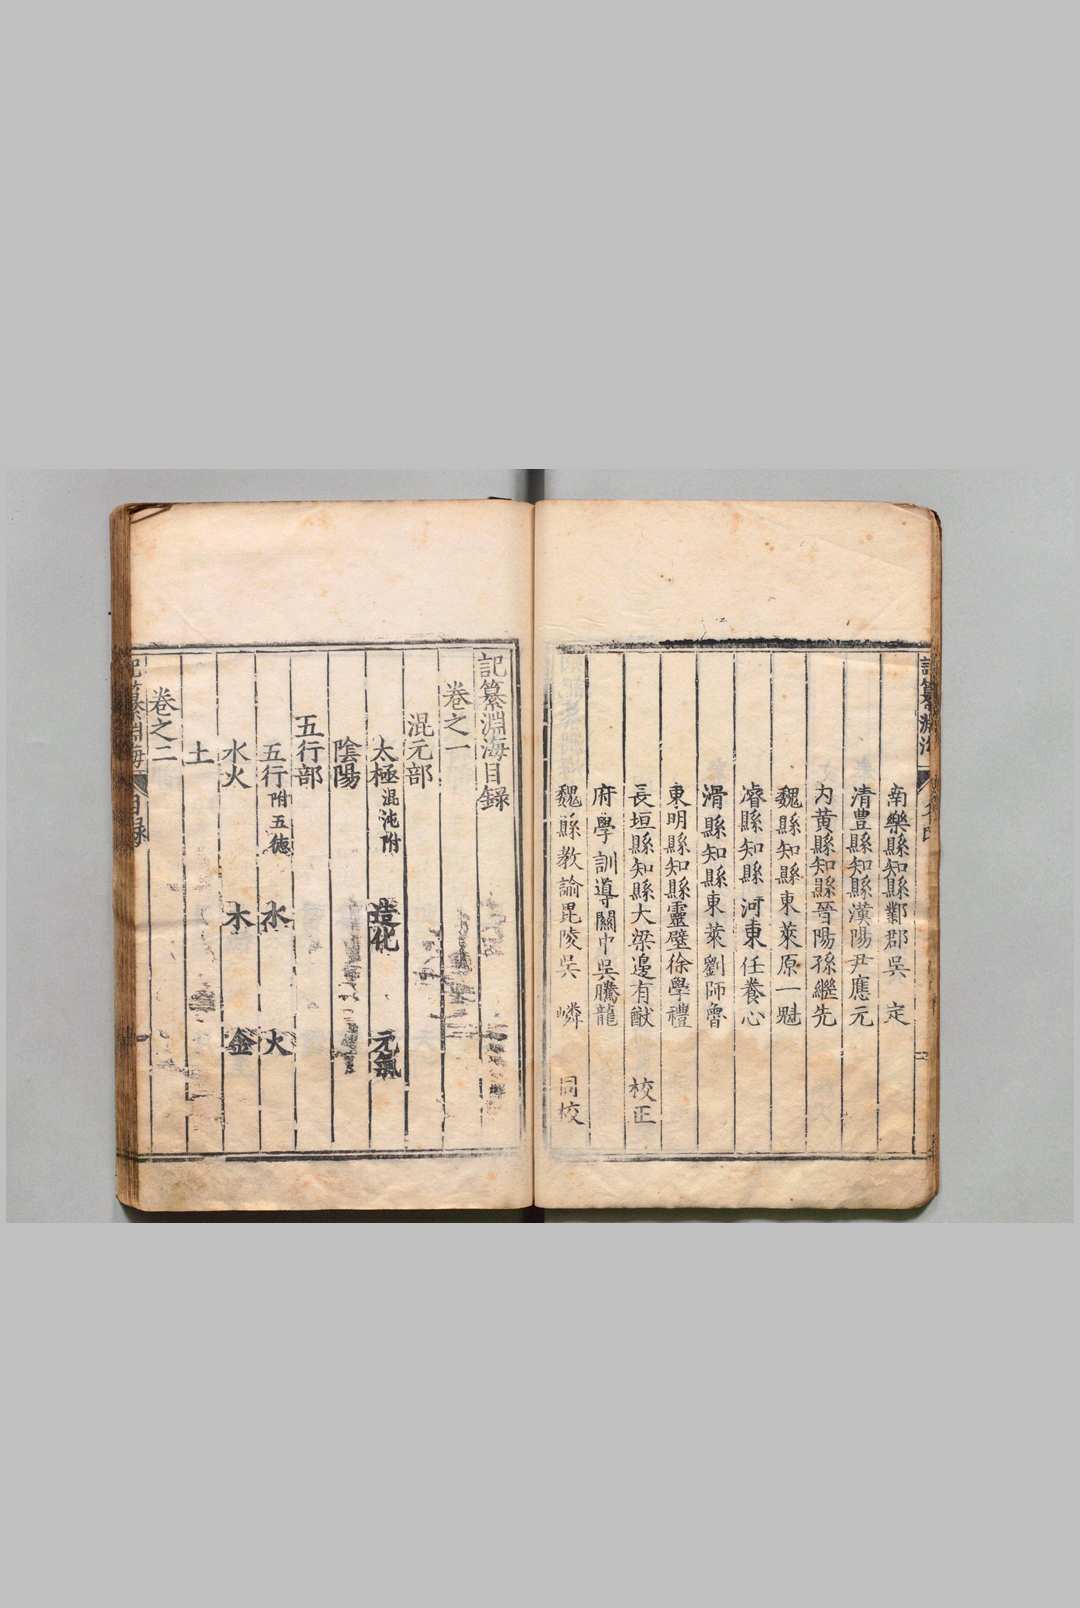 記纂淵海
南樂縣知縣鄴郡吳　定
清豊縣知縣漢陽尹應元
内黄縣知縣晉陽孫繼先
魏縣知縣東萊原一魁
濬縣知縣河東任養心
滑縣知縣東萊劉師魯
東明縣知縣靈壁徐學禮
長垣縣知縣大梁邊有猷　校正
府學訓導關中吳騰龍
魏縣教諭毘陵吳　嶙　同校
記纂淵海目録
卷之一
混元部
太極混沌附　造化　元氣
陰陽
五行部
五行附五德　水　火
水火　木　金
土
卷之二
記纂淵海　目録